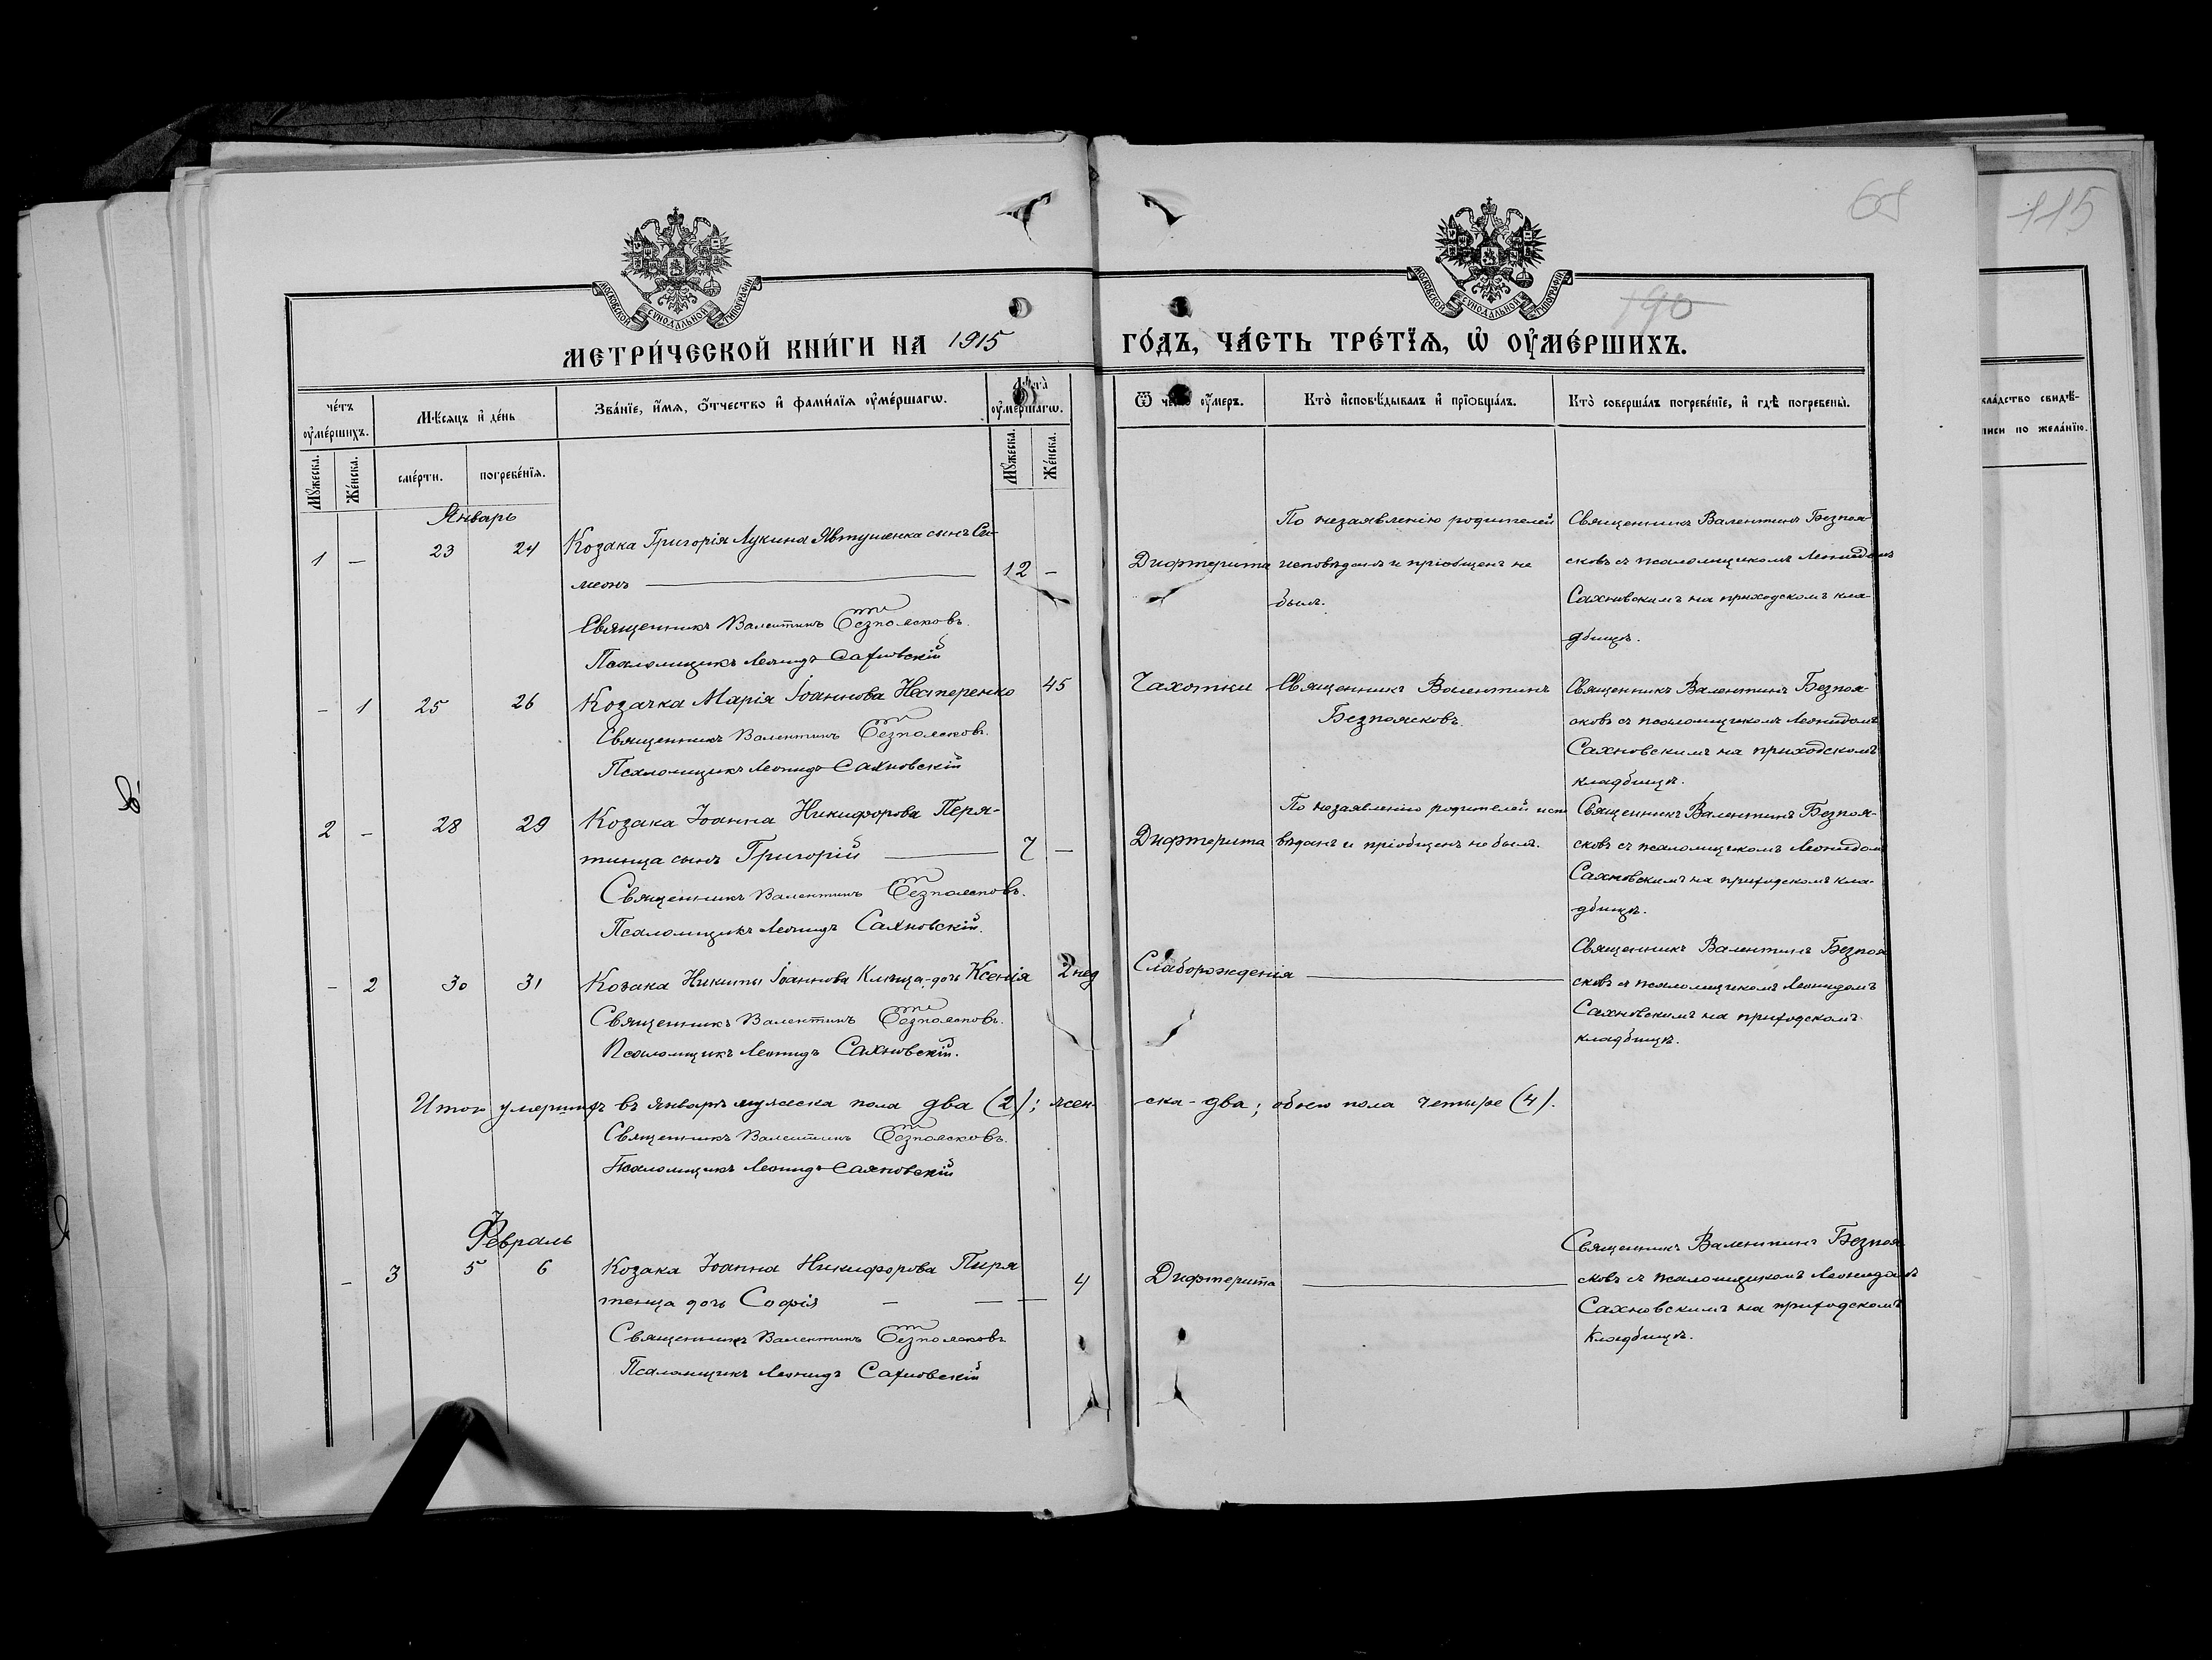 65
115
190
МОСКОВСКОЙ СѴНОДАЛЬНОЙ ТИПОГРАФІИ
МОСКОВСКОЙ СѴНОДАЛЬНОЙ ТИПОГРАФІИ
МЕТРИ́ЧЕСКОЙ КНИ́ГИ НА 1915 ГО́ДЪ, ЧА́СТЬ ТРЕ́ТЇѦ, Ѡ ОУ҆МЕ́РШИХЪ.
че́тъ оу҆ме́ршихъ.
Мꙋжеска.
Же́нска.
Мѣ́сѧцъ и҆ де́нь
сме́рти.
погребе́нїѧ.
Зва́нїе, и҆́мѧ, о҆́тчество и҆ фами́лїѧ оу҆ме́ршагѡ.
Лѣ́та оу҆ме́ршагѡ.
Мꙋжеска.
Же́нска.
Ѿ чегѡ̀ оу҆́меръ.
Кто̀ и҆сповѣ́дывалъ и҆ прїѻбща́лъ.
Кто̀ соверша́лъ погребе́нїе, и҆ гдѣ̀ погребены̀.
сви́дѣ-
по жела́нїю.
Январь
1 — 23 24 Козака Григорія Лукина Явтушенка сынъ Си-
меонъ 12 —
Священникъ Валентинъ Безпоясковъ.
Псаломщикъ Леонидъ Сахновскій
Дифтерита
По незаявленію родителей
исповѣданъ и пріобщенъ не
былъ.
Священникъ Валентинъ Безпоя-
сковъ съ псаломщикомъ Леонидомъ
Сахновскимъ на приходскомъ кла-
дбищѣ.
— 1 25 26 Козачка Марія Іоаннова Нестеренко 45
Священникъ Валентинъ Безпоясковъ.
Псаломщикъ Леонидъ Сахновскій
Чахотки
Священникъ Валентинъ
Безпоясковъ.
Священникъ Валентинъ Безпоя-
сковъ съ псаломщикомъ Леонидомъ
Сахновскимъ на приходскомъ
кладбищѣ.
2 — 28 29 Козака Іоанна Никифорова Перя-
тинца сынъ Григорій 7 —
Священникъ Валентинъ Безпоясковъ.
Псаломщикъ Леонидъ Сахновскій.
Дифтерита
По незаявленію родителей испо
вѣданъ и пріобщенъ не былъ.
Священникъ Валентинъ Безпоя-
сковъ съ псаломщикомъ Леонидом
Сахновскимъ на приходскомъ кла-
дбищѣ.
— 2 30 31 Козака Никиты Іоаннова дочь Ксенія 2 нед
Священникъ Валентинъ Безпоясковъ.
Псаломщикъ Леонидъ Сахновскій.
Слаборожденія
Священникъ Валентинъ Безпоя
сковъ съ псаломщикомъ Леонидомъ
Сахновскимъ на приходскомъ
кладбищѣ.
Итого умершихъ въ Январѣ мужеска пола два (2); жен-
ска - два; обоего пола четыре (4).
Священникъ Валентинъ Безпоясковъ.
Псаломщикъ Леонидъ Сахновскій
Февраль
— 3 5 6 Козака Іоанна Никифорова Пиря
тенца дочь Софія — — 4
Священникъ Валентинъ Безпоясковъ
Псаломщикъ Леонидъ Сахновскій
Дифтерита
Священникъ Валентинъ Безпоя
сковъ съ псаломщикомъ Леонидомъ
Сахновскимъ на приходскомъ
кладбищѣ.